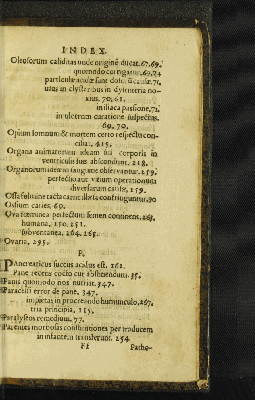 INDEX.
Oleosorum caliditas unde originē ducat. 67.69.
quomodo corrigatur. 69.74
particulæ acidæ sunt
usus in clysteribus in dysenteria no-
xius. 70. 61.
in iliaca passione. 71.
in ulcerum curatione suspectus.
69. 70.
Opium somnum & mortem certo respectu con-
ciliat. 415.
Organa animarum ideam sui corporis in
ventriculis suis abscondunt. 218.
Organorum idea in sanguine observantur. 159.
perfectio aut vitium operationum
diversarum causa. 159.
Ossa fulmine tacta carne illæsa confringuntur. 90
Ostium caries. 69.
Ova fœminea perfectum semen continent.
humana. 150. 251.
subventanea. 264. 265.
Ovaria. 295.
P.
PAncreaticus succus acidus est. 262.
Pane recens cocto cur abstinendum. 35.
Panis quomodo nos nutriat. 347.
Paracelsi error de pane. 347.
impietas in procreando humunculo. 267.
tria principia. 115.
Paralyseos remedium. 77.
Parentes morbosas constitutiones per traducem
in infantem transferunt. 254
Patho-